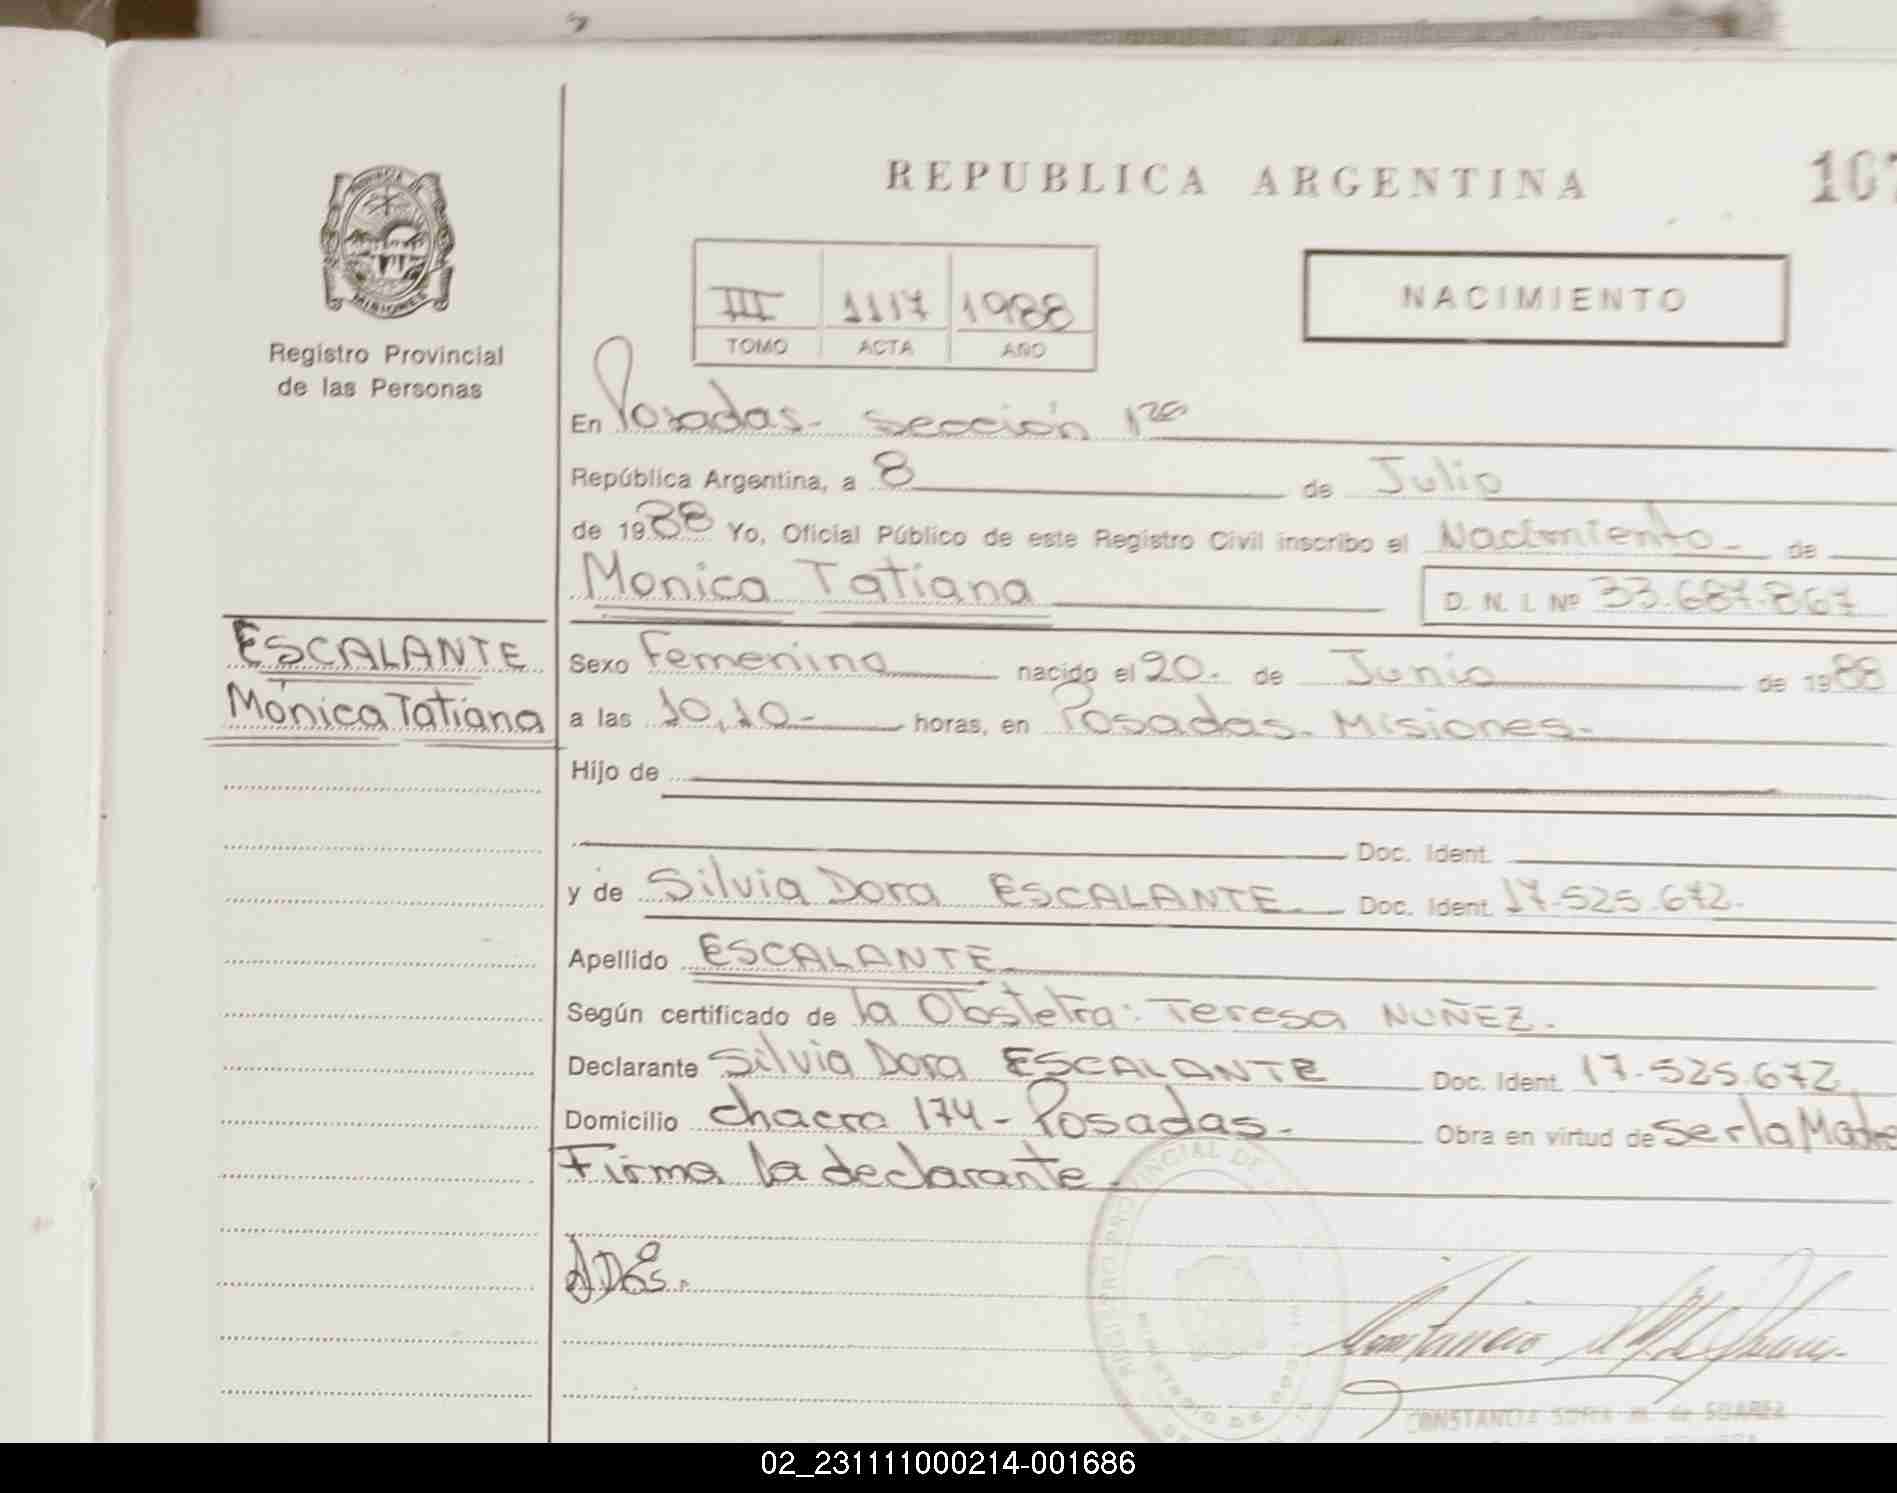 REPUBLICA ARGENTINA
PROVINCIA DE MISIONES
Registro Provincial
de las Personas
III 1117 1988
TOMO ACTA AÑO
NACIMIENTO
En Posadas- sección 1ra
República Argentina, a 8 de Julio
de 1988 Yo, Oficial Público de este Registro Civil inscribo el Nacimiento- de
Monica Tatiana D. N. I. Nº 33.687.867
ESCALANTE
Mónica Tatiana
Sexo Femenino nacido el 20. de Junio de 1988
a las 10,10- horas, en Posadas- Misiones-
Hijo de
Doc. Ident.
y de Silvia Dora ESCALANTE- Doc. Ident. 17.525.672.
Apellido ESCALANTE
Según certificado de la Obstetra: Teresa NUÑEZ.
Declarante Silvia Dora ESCALANTE Doc. Ident. 17.525.672
Domicilio chacra 174- Posadas- Obra en virtud de ser la Madre
Firma la declarante.
REGISTRO PROVINCIAL DE
MINISTERIO DE GOBIERNO
CONSTANCIA SOFIA M. de SUAREZ
02_231111000214-001686